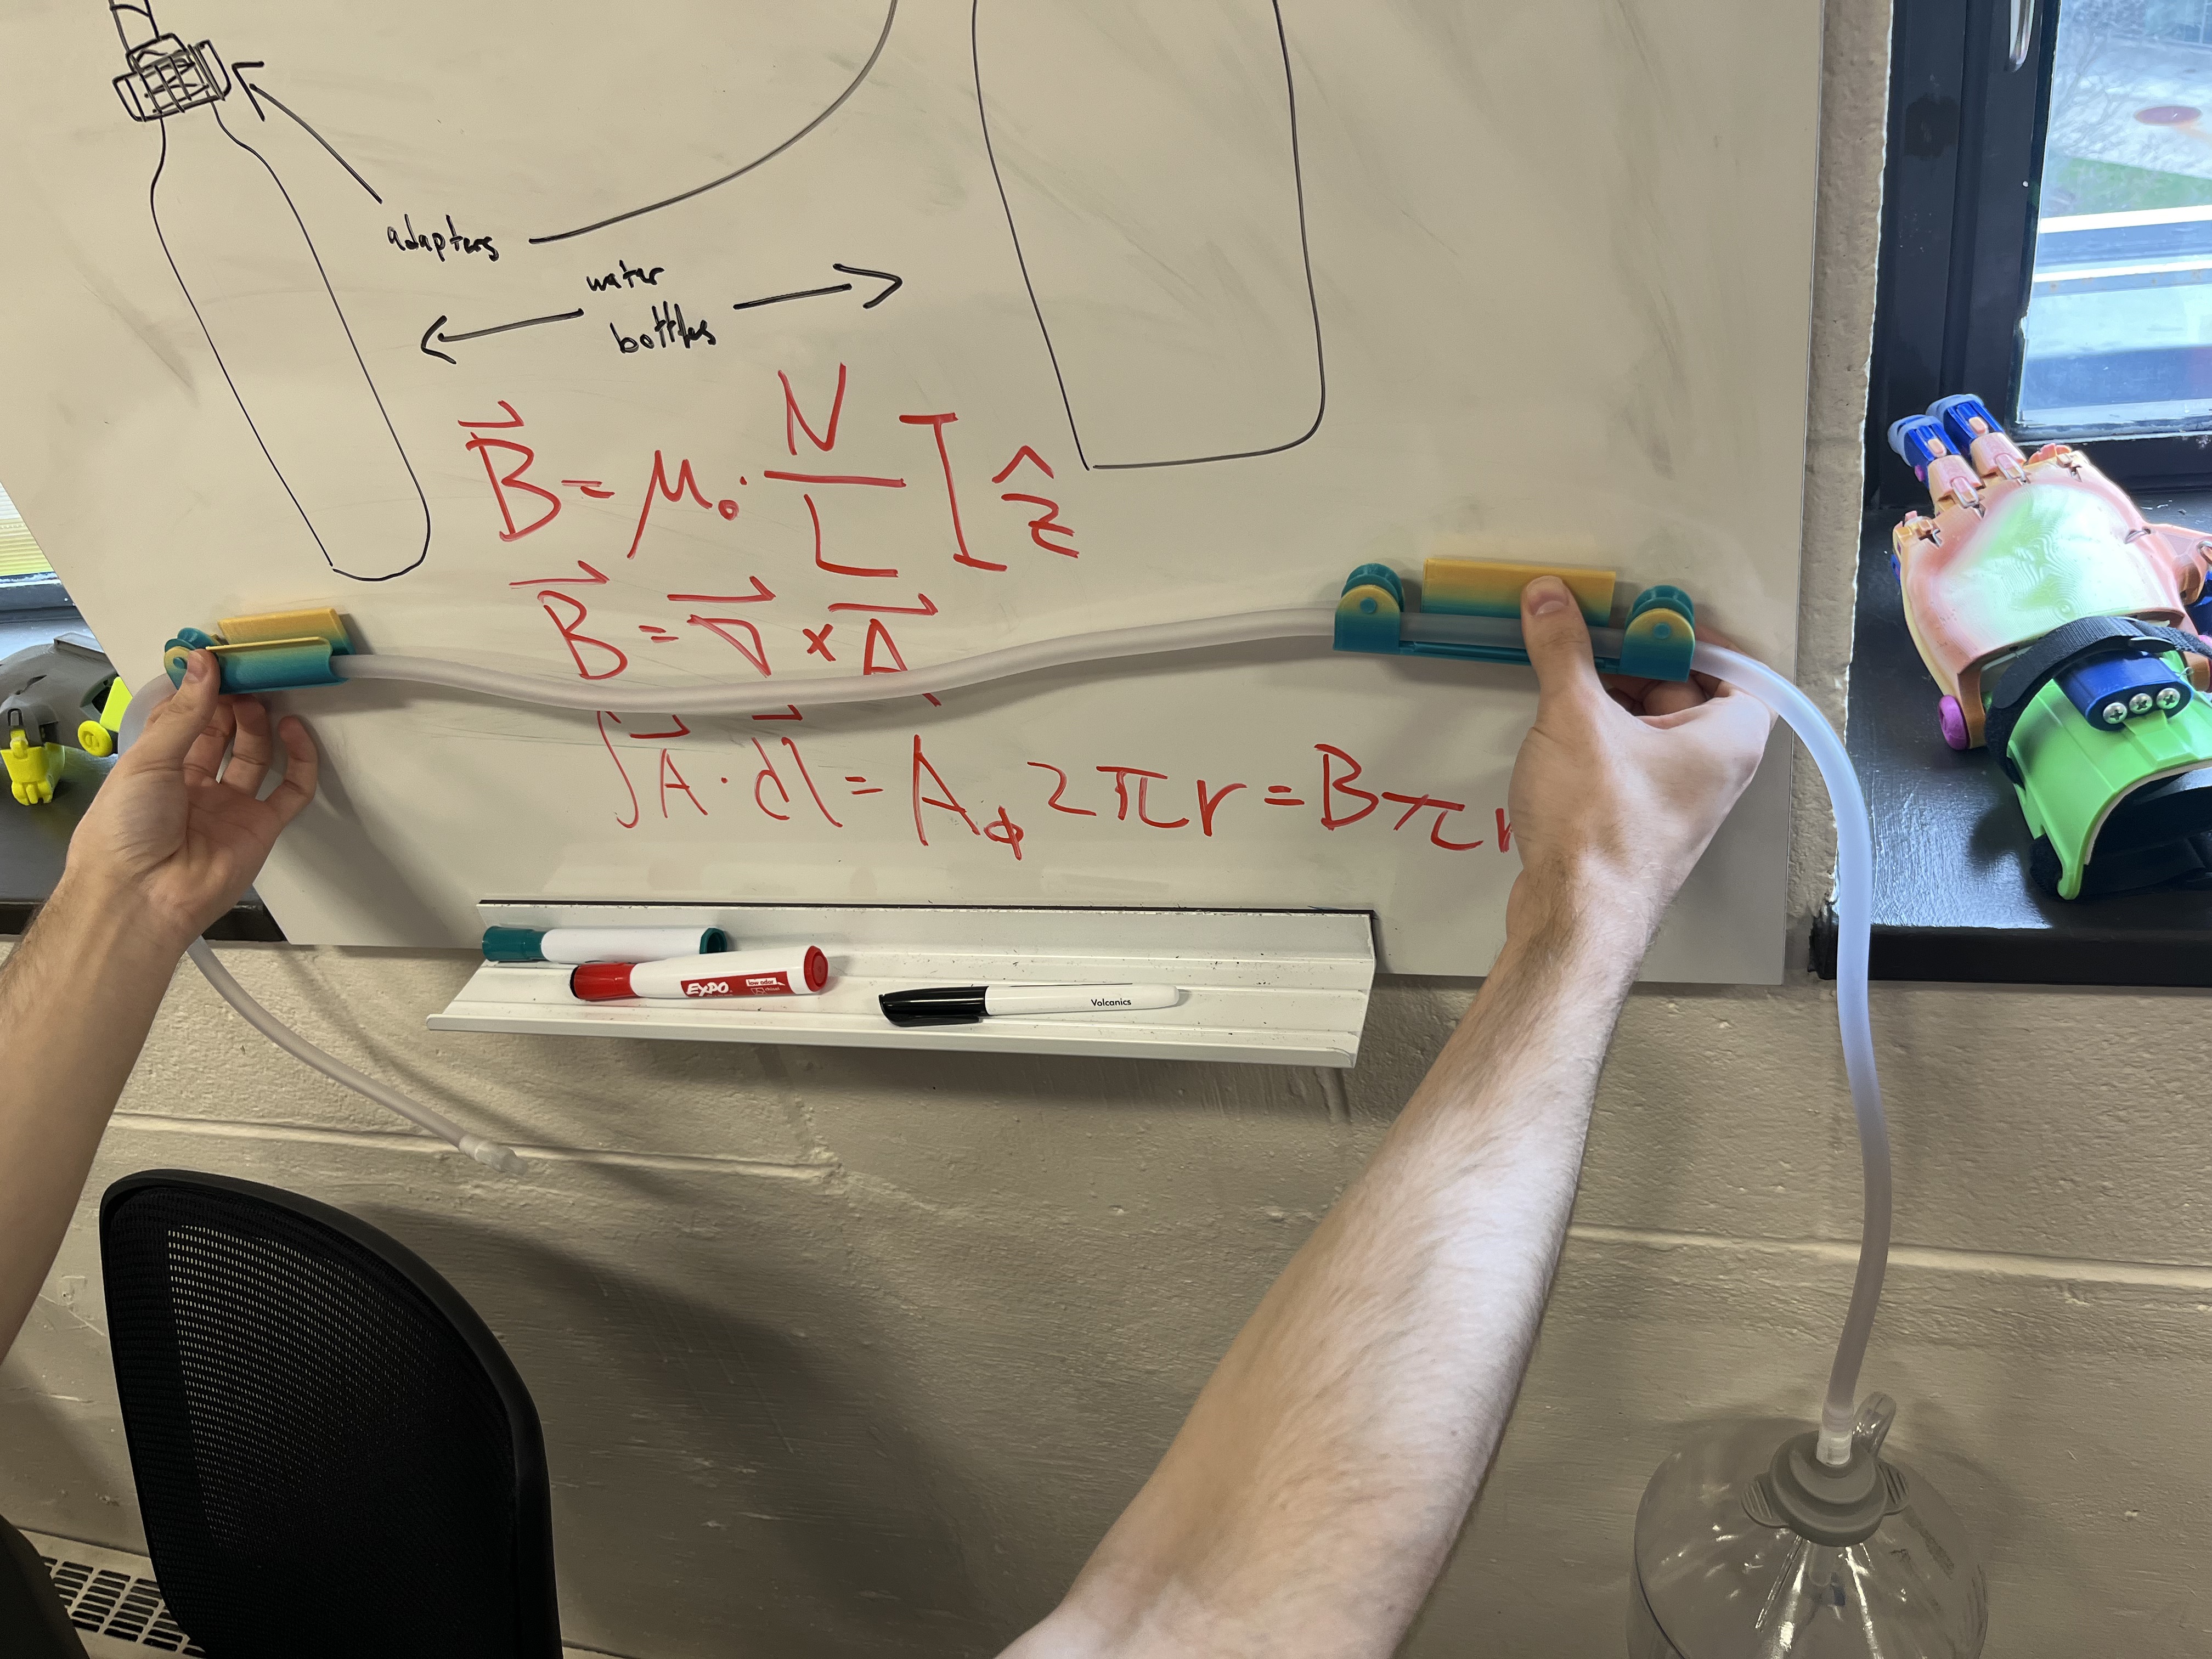 adapters
water
bottles
B⃗ = μ₀ · N/L I ẑ
B⃗ = ∇⃗ × A⃗
∫A⃗ · dl⃗ = A_ϕ 2πr = Bπr
EXPO
low odor
Volcanics